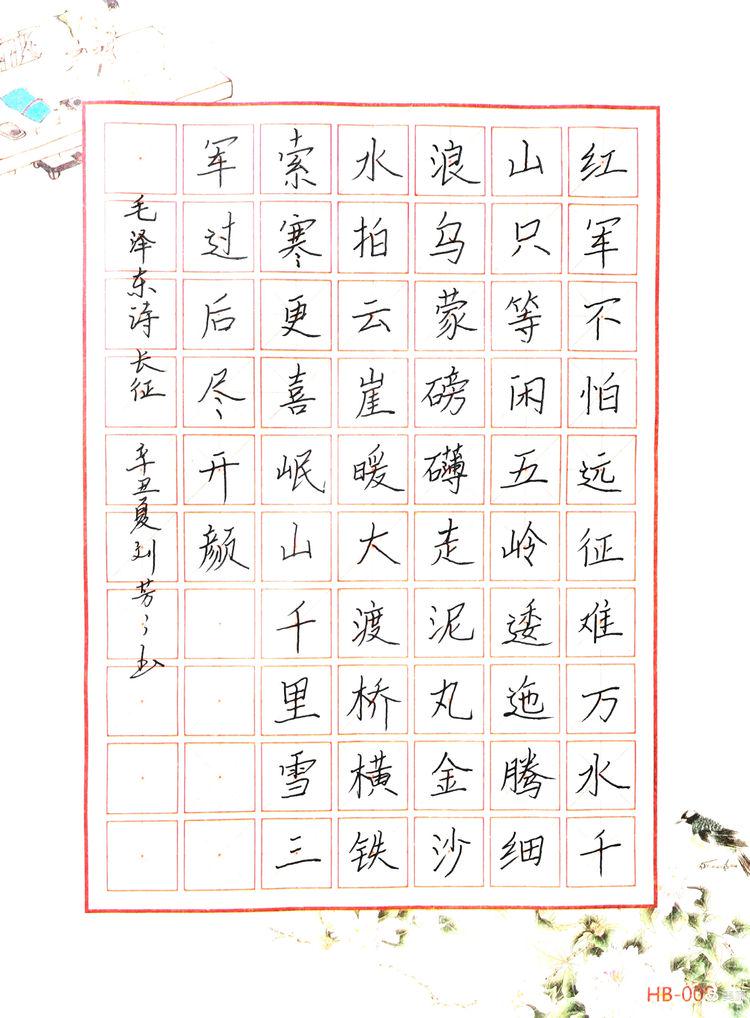 红军不怕远征难万水千
山只等闲五岭逶迤腾细
浪乌蒙磅礴走泥丸金沙
水拍云崖暖大渡桥横铁
索寒更喜岷山千里雪三
军过后尽开颜
毛泽东诗长征 辛丑夏刘芳々书